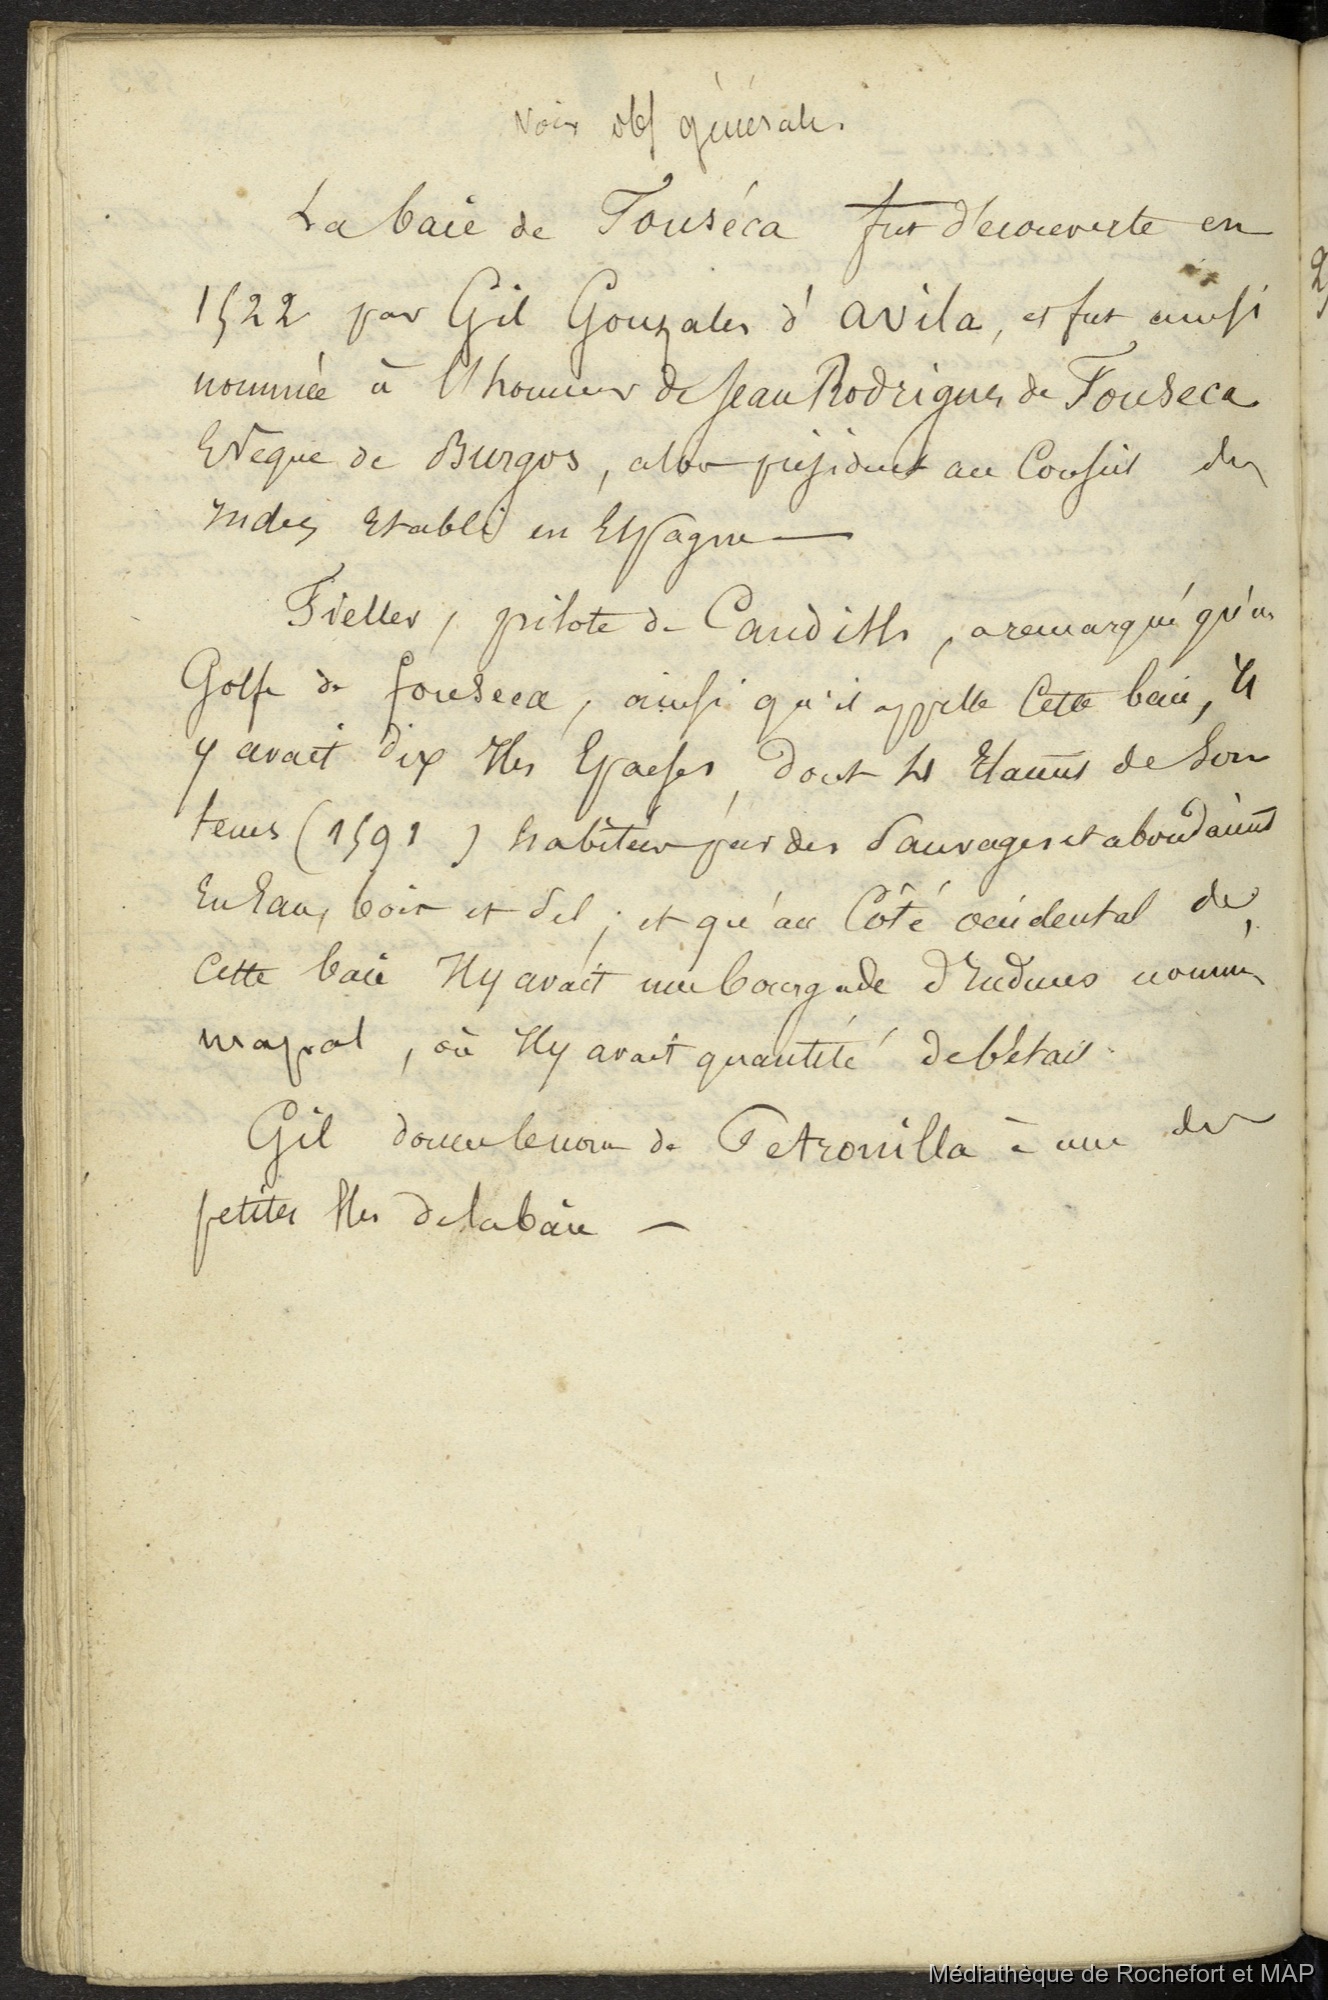 Voir obs générales
La baie de Fonséca fut découverte en
1522 par Gil Gonzales d'avila, et fut ainsi
nommée à l'honneur de Jean Rodrigues de Fonseca
Evêque de Burgos, alors président au Conseil des
Indes Etabli en Espagne —
pilote de Candish, a remarqué qu'au
Golfe de fonseca, ainsi qu'il appelle Cette baie, il
y avait dix Iles Eparses, dont 4 Etaient de son
tems (1591) habitées par des Sauvages et abondaient
En Eau, bois et Sel; et qu'au Côté occidental de
Cette baie Il y avait une bourgade d'Indiens nommée
où Il y avait quantité de bétail.
Gil donna le nom de Petronilla à une des
petites Iles de la baie —
Médiathèque de Rochefort et MAP